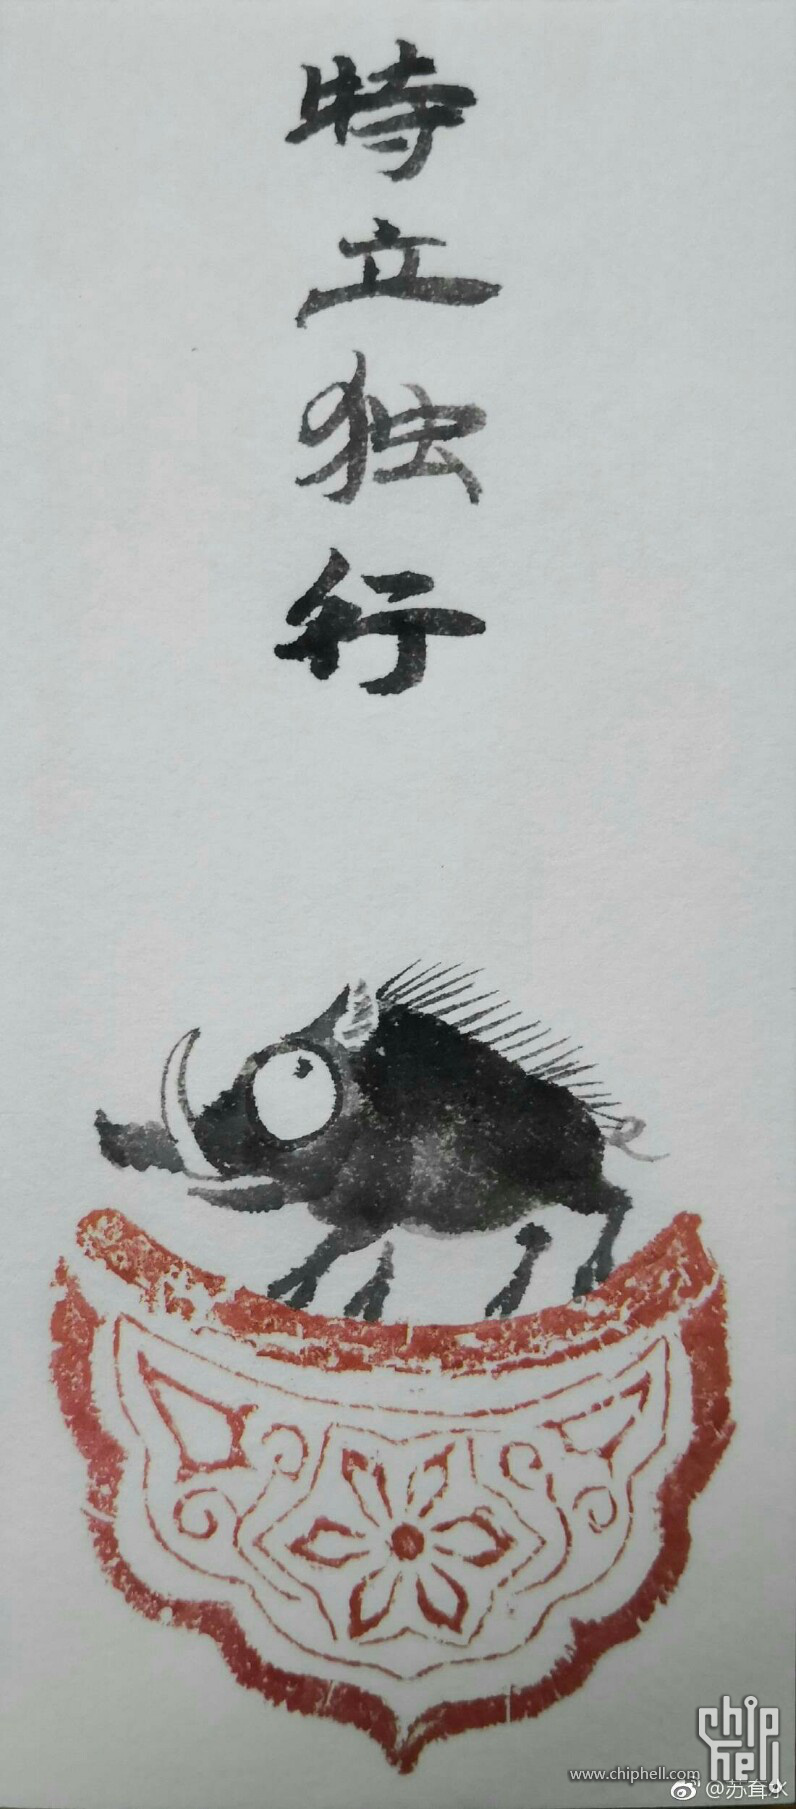 特立独行
chip
hell
www.chiphell.com
@苏耷水